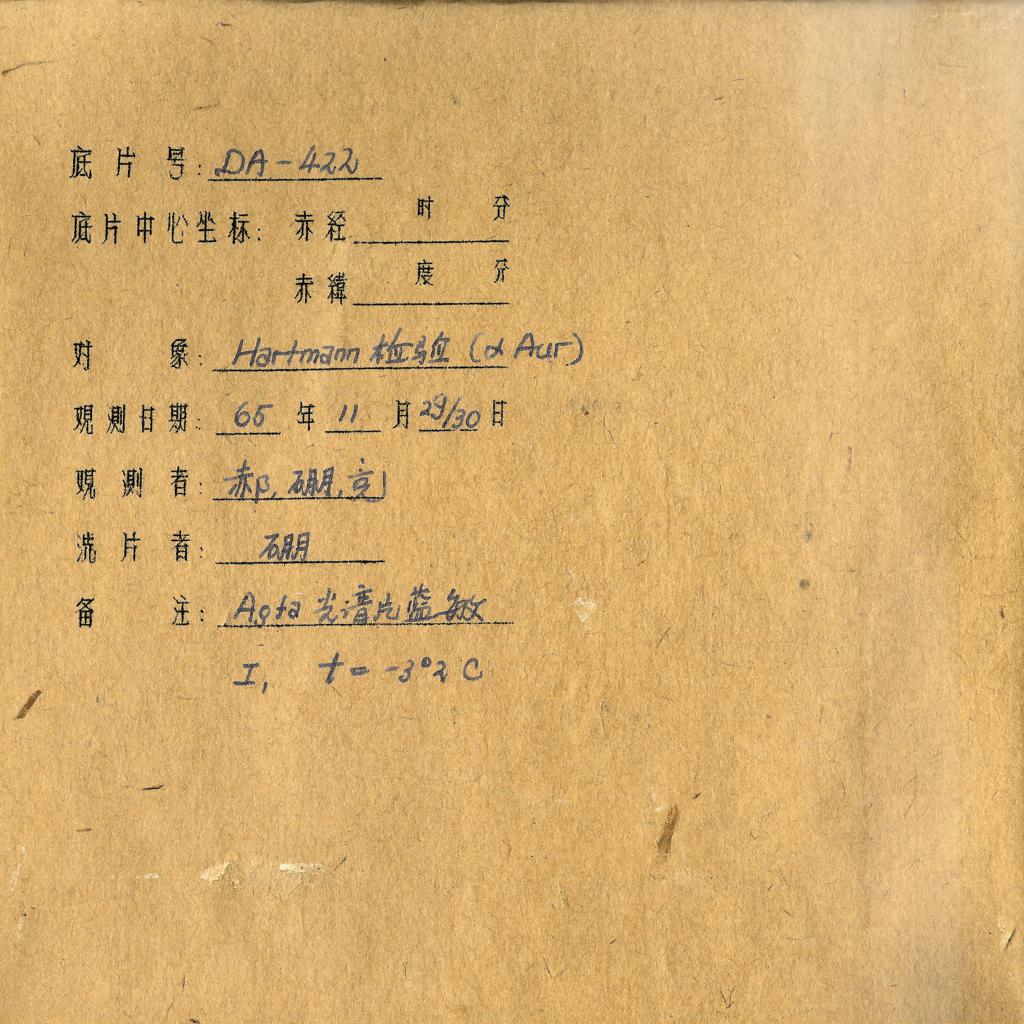 底片号: DA-422
底片中心坐标: 赤经 时 分
赤纬 度 分
对象: Hartmann 检验 (α Aur)
观测日期: 65 年 11 月 29/30 日
观测者: 郝, 硼, 亮
洗片者: 硼
备注: Agfa 光谱片蓝敏
I, t = -3°2 C